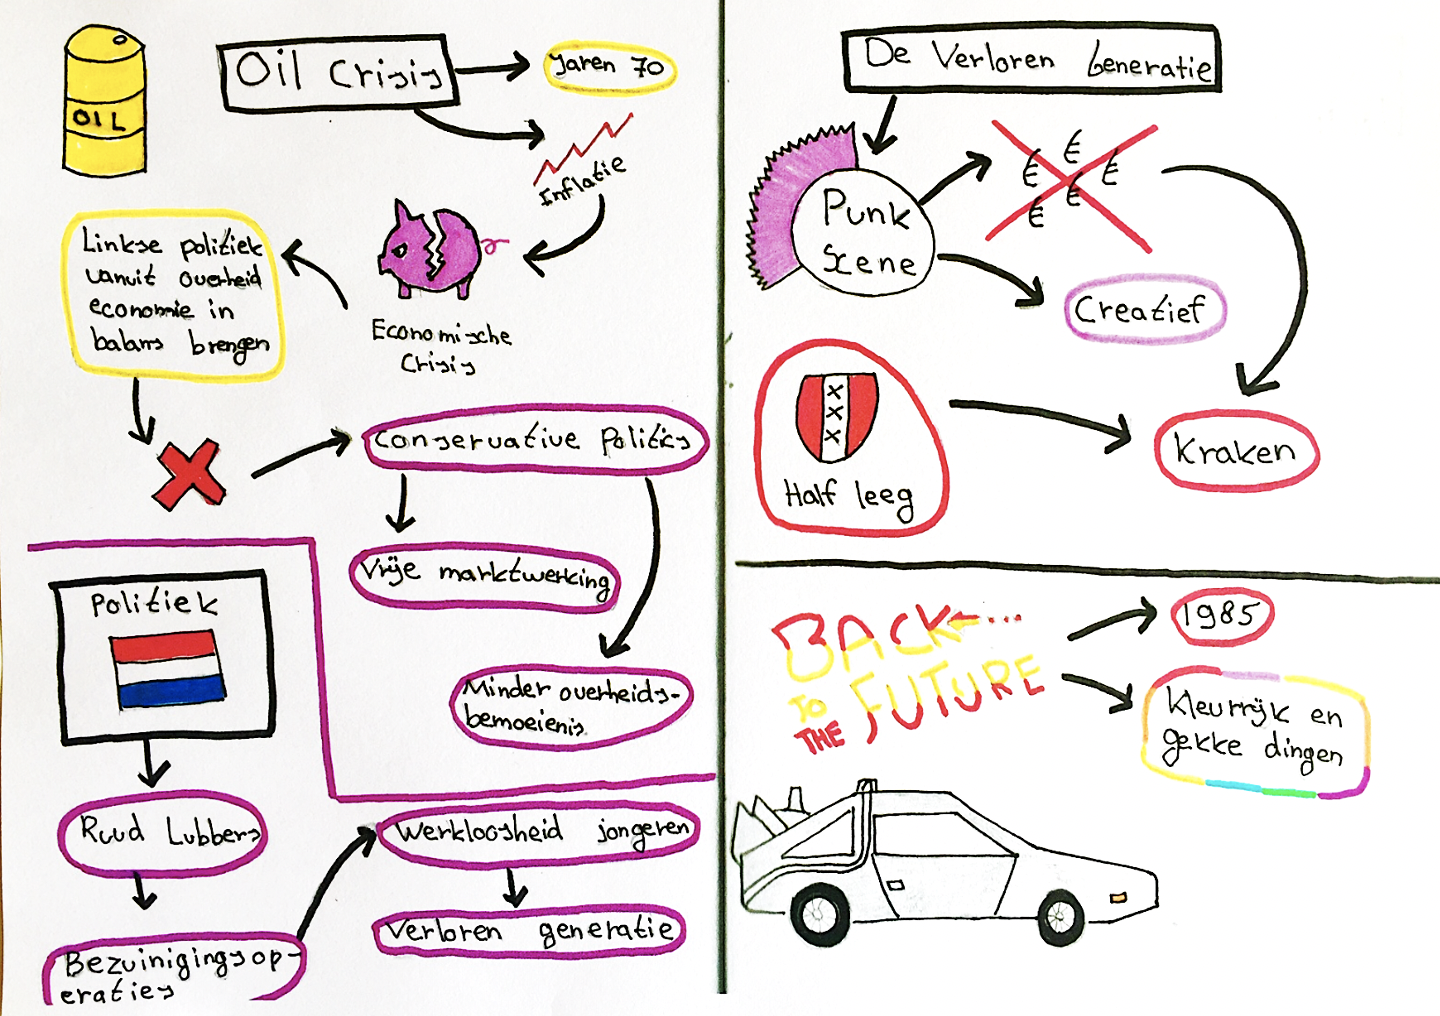 OIL
Oil Crisis
Jaren 70
Inflatie
Economische
Crisis
Linkse politiek
vanuit overheid
economie in
balans brengen
Conservative Politics
Vrije marktwerking
Minder overheids-
bemoeienis
Politiek
Ruud Lubbers
Bezuinigingsop-
eraties
Werkloosheid jongeren
Verloren generatie
De Verloren Generatie
Punk
Scene
€ € € € €
Creatief
XXX
Half leeg
Kraken
BACK
TO FUTURE
THE
1985
Kleurrijk en
gekke dingen